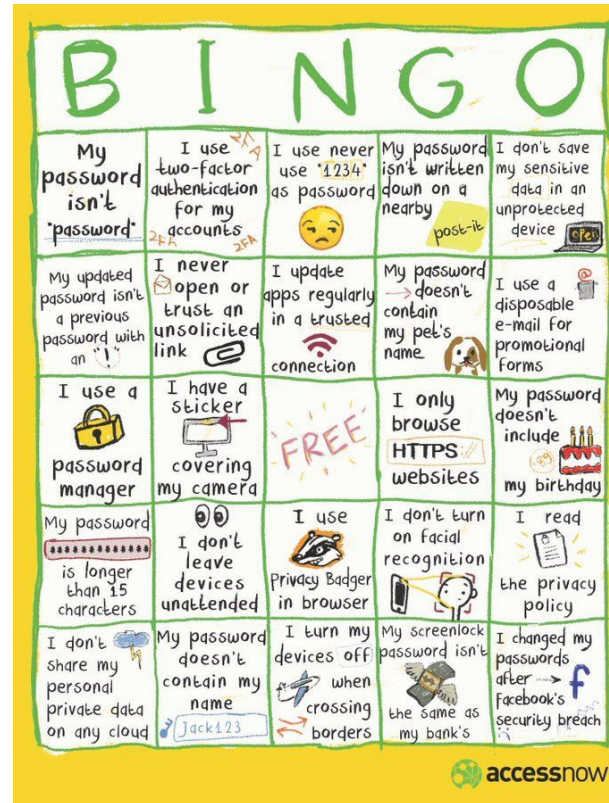 B I N G O
My
password
isn't
"password"
I use
two-factor
authentication
for my
accounts
2FA
2FA
2FA
I use never
use "1234"
as password
My password
isn't written
down on a
nearby
post-it
I don't save
my sensitive
data in an
unprotected
device
OPEN
My updated
password isn't
a previous
password with
an !
I never
open or
trust an
unsolicited
link
I update
apps regularly
in a trusted
connection
My password
doesn't
contain
my pet's
name
@
I use a
disposable
e-mail for
promotional
forms
I use a
password
manager
I have a
sticker
covering
my camera
FREE
I only
browse
HTTPS://
websites
My password
doesn't
include
my birthday
My password
***************
is longer
than 15
characters
I don't
leave
devices
unattended
I use
Privacy Badger
in browser
I don't turn
on facial
recognition
I read
the privacy
policy
I don't
share my
personal
private data
on any cloud
My password
doesn't
contain my
name
Jack123
I turn my
devices off
when
crossing
borders
My screenlock
password isn't
the same as
my bank's
I changed my
passwords
after f
Facebook's
security breach
accessnow